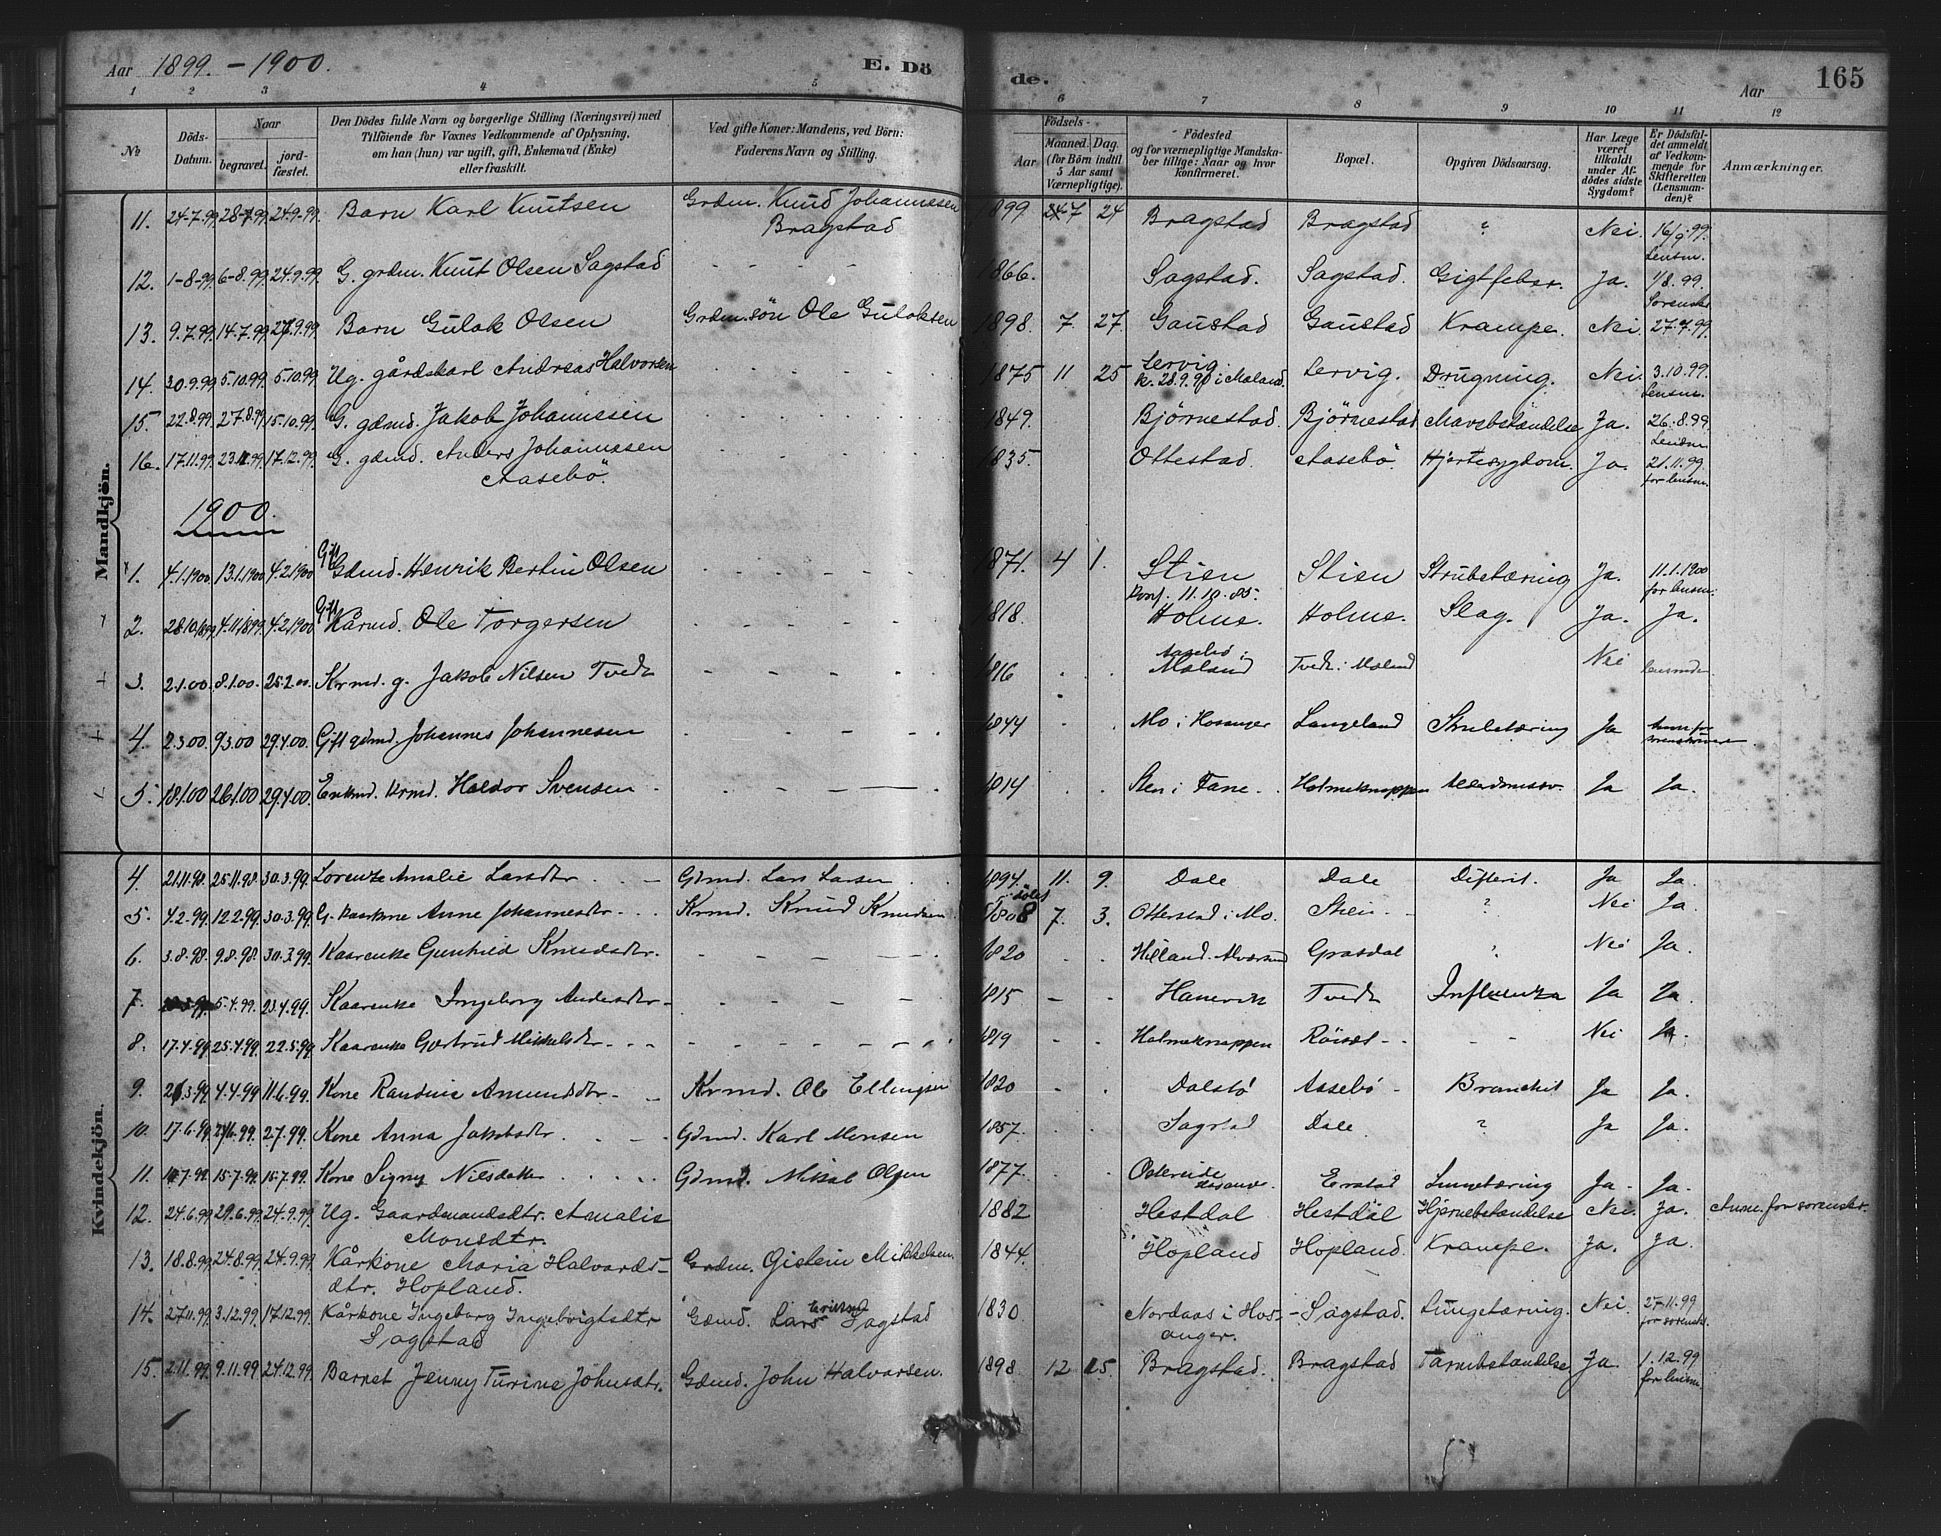 Aar 1899. - 1900. E. Dö de. Aar 165
1 2 3 4 5 6 7 8 9 10 11 12
No. Döds-Datum. Naar begravet. jordfæstet. Den Dödes fulde Navn og borgerlige Stilling (Næringsvei) med Tilföiende for Voxnes Vedkommende af Oplysning, om han (hun) var ugift, gift, Enkemand (Enke) eller fraskilt. Ved gifte Koner: Mandens, ved Börn: Faderens Navn og Stilling. Födsels- Aar Maaned. Dag. (for Börn indtil 5 Aar samt Værnepligtige). Födested og for værnepligtige Mandskaber tillige: Naar og hvor konfirmeret. Bopæl. Opgiven Dödsaarsag. Har Læge været tilkaldt under Afdödes sidste Sygdom? Er Dödsfaldet anmeldt af Vedkommende for Skifteretten (Lensmanden)? Anmærkninger.
Mandkjön.
11. 24-7.99 28-7.99 24.9.99. Barn Karl Knutsen Grdm. Knud Johannesen Bragstad 1899 7 24 Bragstad Bragstad ? Nei. 16/9.99. Lensm.
12. 1-8-99. 6-8.99. 24.9.99. G. grdm. Knut Olsen Sagstad - - - - 1866. Sagstad. Sagstad. Gigtfeber. Ja. 1/8.99. Sorenskr.
13. 9.7.99. 14.7.99. 24.9.99. Barn Gulak Olsen Grdm.sön Ole Gulaksen 1898. 7. 27. Gaustad Gaustad Krampe. Nei. 27.7.99.
14. 30.9.99. 5.10.99. 5.10.99. Ug. gårdskarl Andreas Halvorsen 1875 11 25 Lervig k. 28.9.90 i Maland. Lervig. Drugning. Nei. 3.10.99. Lensm.
15. 22.8.99. 27.8.99. 15.10.99. G. gdmd. Jakob Johannesen 1849. Bjørnestad Bjørnestad Mavebetændelse Ja. 26.8.99. Lensm.
16. 17.11.99. 23.11.99. 17.12.99. G. gdmd. Anders Johannesen Aasebö. 1835. Ottestad. Aasebö Hjertesygdom. Ja. 21.11.99. for lensm.
1900.
1. 4.1.1900 13.1.1900 4.2.1900 Gift Gdmd. Henrik Bertin Olsen - - - 1871. 4 1. Stien Konf. 11.10.85. Stien Strubetæring Ja. 11.1.1900 for lensm.
2. 28.10.1899 4.11.1899 4.2.1900 Gift Kårmd. Ole Torgersen - - - 1818. Holme. Holme. Slag. Ja. Ja.
3. 2.1.00. 8.1.00. 25.2.00. Krmd. g. Jakob Nilsen Tvedt - - - 1816 Aasebö i Maland Tvedt i Maland Nei lensmden
4. 2.3.00. 9.3.00 29.4.00. Gift gdmd. Johannes Johannesen - - - 1844 Mo i Hosanger Langeland Strubetæring Ja
5. 18.1.00 26.1.00 29.4.00. Enkmd. Krmd. Haldor Svensen - - - 1814 Sten i Fane. Holmeknappen Alderdomssv. Ja Ja.
Kvindekjön.
4. 21.11.98. 25.11.98. 30.3.99. Lorentze Amalie Larsdtr. Gdmd. Lars Larsen 1894. 11. 9. Dale Dale Difterit. Ja Ja.
5. 4.2.99. 12.2.99. 30.3.99. G. kaarkone Anne Johannesdtr. Krmd. Knud Knudsen 1808 7. 3. Otterstad i Mo. Stien ? Nei Ja.
6. 3.8.98. 9.8.98. 30.3.99. Kaarenke Gunhild Knudsdtr. - - - 1820 Hilland. Alversund Grasdal ? Nei Ja.
7. 5.4.99. 23.4.99. Kaarenke Ingeborg Andersdtr. - - - 1815 Hanevik Tvedt Influenza Ja Ja.
8. 17.4.99. 25.4.99. 22.5.99 Kaarenke Gertrud Mikkelsdtr. - - - 1819 Holmeknappen Röiset - - Nei Ja.
9. 26.3.99. 4.4.99 11.6.99. Kone Randine Amundsdtr. Krmd. Ole Ellingsen 1820 Dalstö Aasebö Bronchit Ja Ja.
10. 17.6.99. 27.99. Kone Anna Jakobsdtr. Gdmd. Karl Monsen 1857. Sagstad Dale. ? Ja Ja.
11. 7.99. 15.7.99. 15.7.99. Kone Signy Nilsdatter Gdmd. Mikal Olsen 1877. Ostereide Hosanger. Erstad Lungetæring Ja. Ja.
12. 24.6.99. 29.6.99. 24.9.99. Ug. Gaardmandsdtr. Amalie Monsdtr. 1882 Hestdal Hestdal Hjernebetændelse Nei. Ja. Anm. for sorenskr.
13. 18.8.99. 24.8.99. 24.9.99. Kårkone Maria Halvardsdtr. Hopland. Grdm. Gistein Mikkelsen. 1844. Hopland Hopland. Krampe. Ja. Ja.
14. 27.11.99. 3.12.99. 17.12.99. Kårkone Ingeborg Ingebrigtsdtr Sagstad Gdmd. Lars Eriksen Sagstad 1830 Nordaas i Hosanger. Sagstad. Lungetæring. Nei. 27.11.99 for sorenskr.
15. 2.11.99. 9.11.99 24.12.99. Barnet Jenny Turine Johnsdtr. Gdmd. John Halvorsen. 1898 12 15. Bragstad. Bragstad Tarmbetændelse Ja. 1.12.99 for lensm.